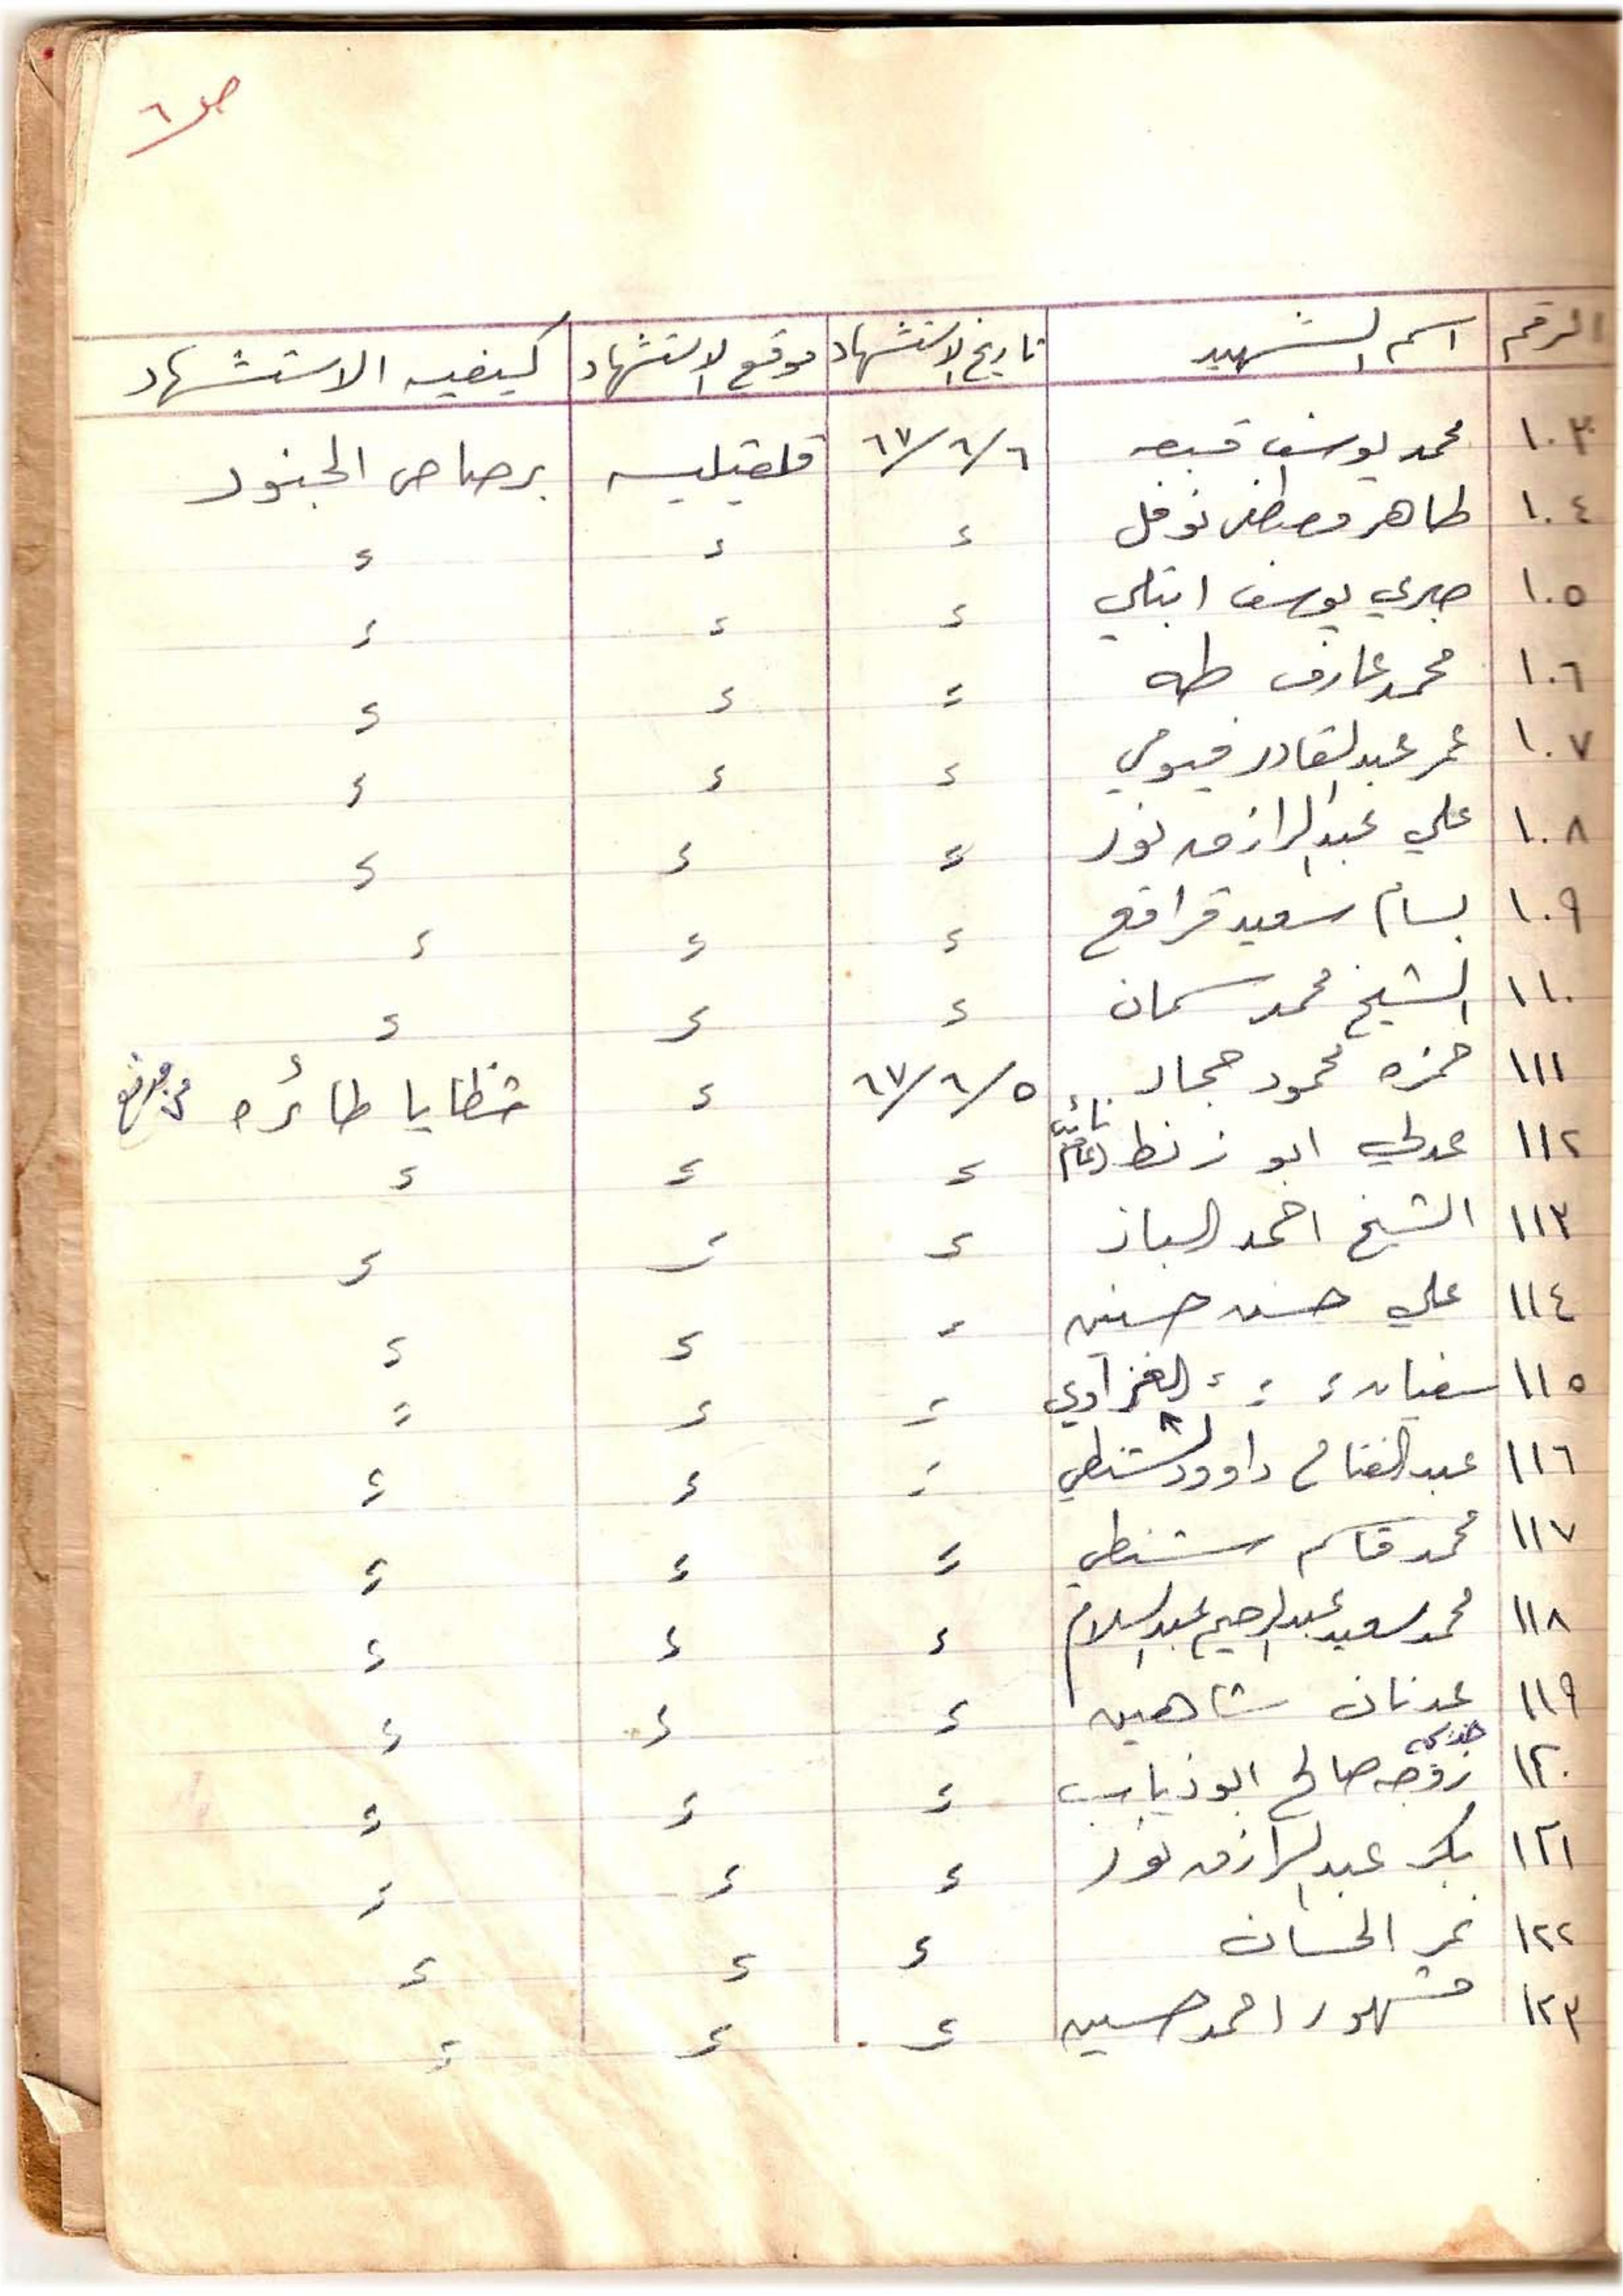 ص ٦
الرقم اسم الشهيد تاريخ الاستشهاد موقع الاستشهاد كيفيه الاستشهاد
١٠٣ محمد يوسف قبعه ٦/٦/٦٧ قلقيليه برصاص الجنود
١٠٤ طاهر مصطفى نوفل ء ء ء
١٠٥ صبري يوسف ابتلي ء ء ء
١٠٦ محمد عارف طه ء ء ء
١٠٧ عمر عبدالقادر فيومي ء ء ء
١٠٨ علي عبدالرازق نور ء ء ء
١٠٩ بسام سعيد قراقع ء ء ء
١١٠ الشيخ محمد سمان ء ء ء
١١١ حمزه محمود حجاز ٥/٦/٦٧ ء شظايا طائره
١١٢ عدلي ابو زنط نائب ء ء ء
١١٣ الشيخ احمد الباز ء ء ء
١١٤ علي حسن حسنين ء ء ء
١١٥ سفيان ء ء ء الغزاوي ء ء ء
١١٦ عبدالفتاح داوود الشنطي ء ء ء
١١٧ محمد قاسم شنطي ء ء ء
١١٨ محمد سعيد عبدالرحيم عبدالسلام ء ء ء
١١٩ عدنان شاهين ء ء ء
خديجه
١٢٠ زوجه صالح ابو ذياب ء ء ء
١٢١ بكر عبدالرازق نور ء ء ء
١٢٢ نمر الحسان ء ء ء
١٢٣ مشهور احمد حسين ء ء ء